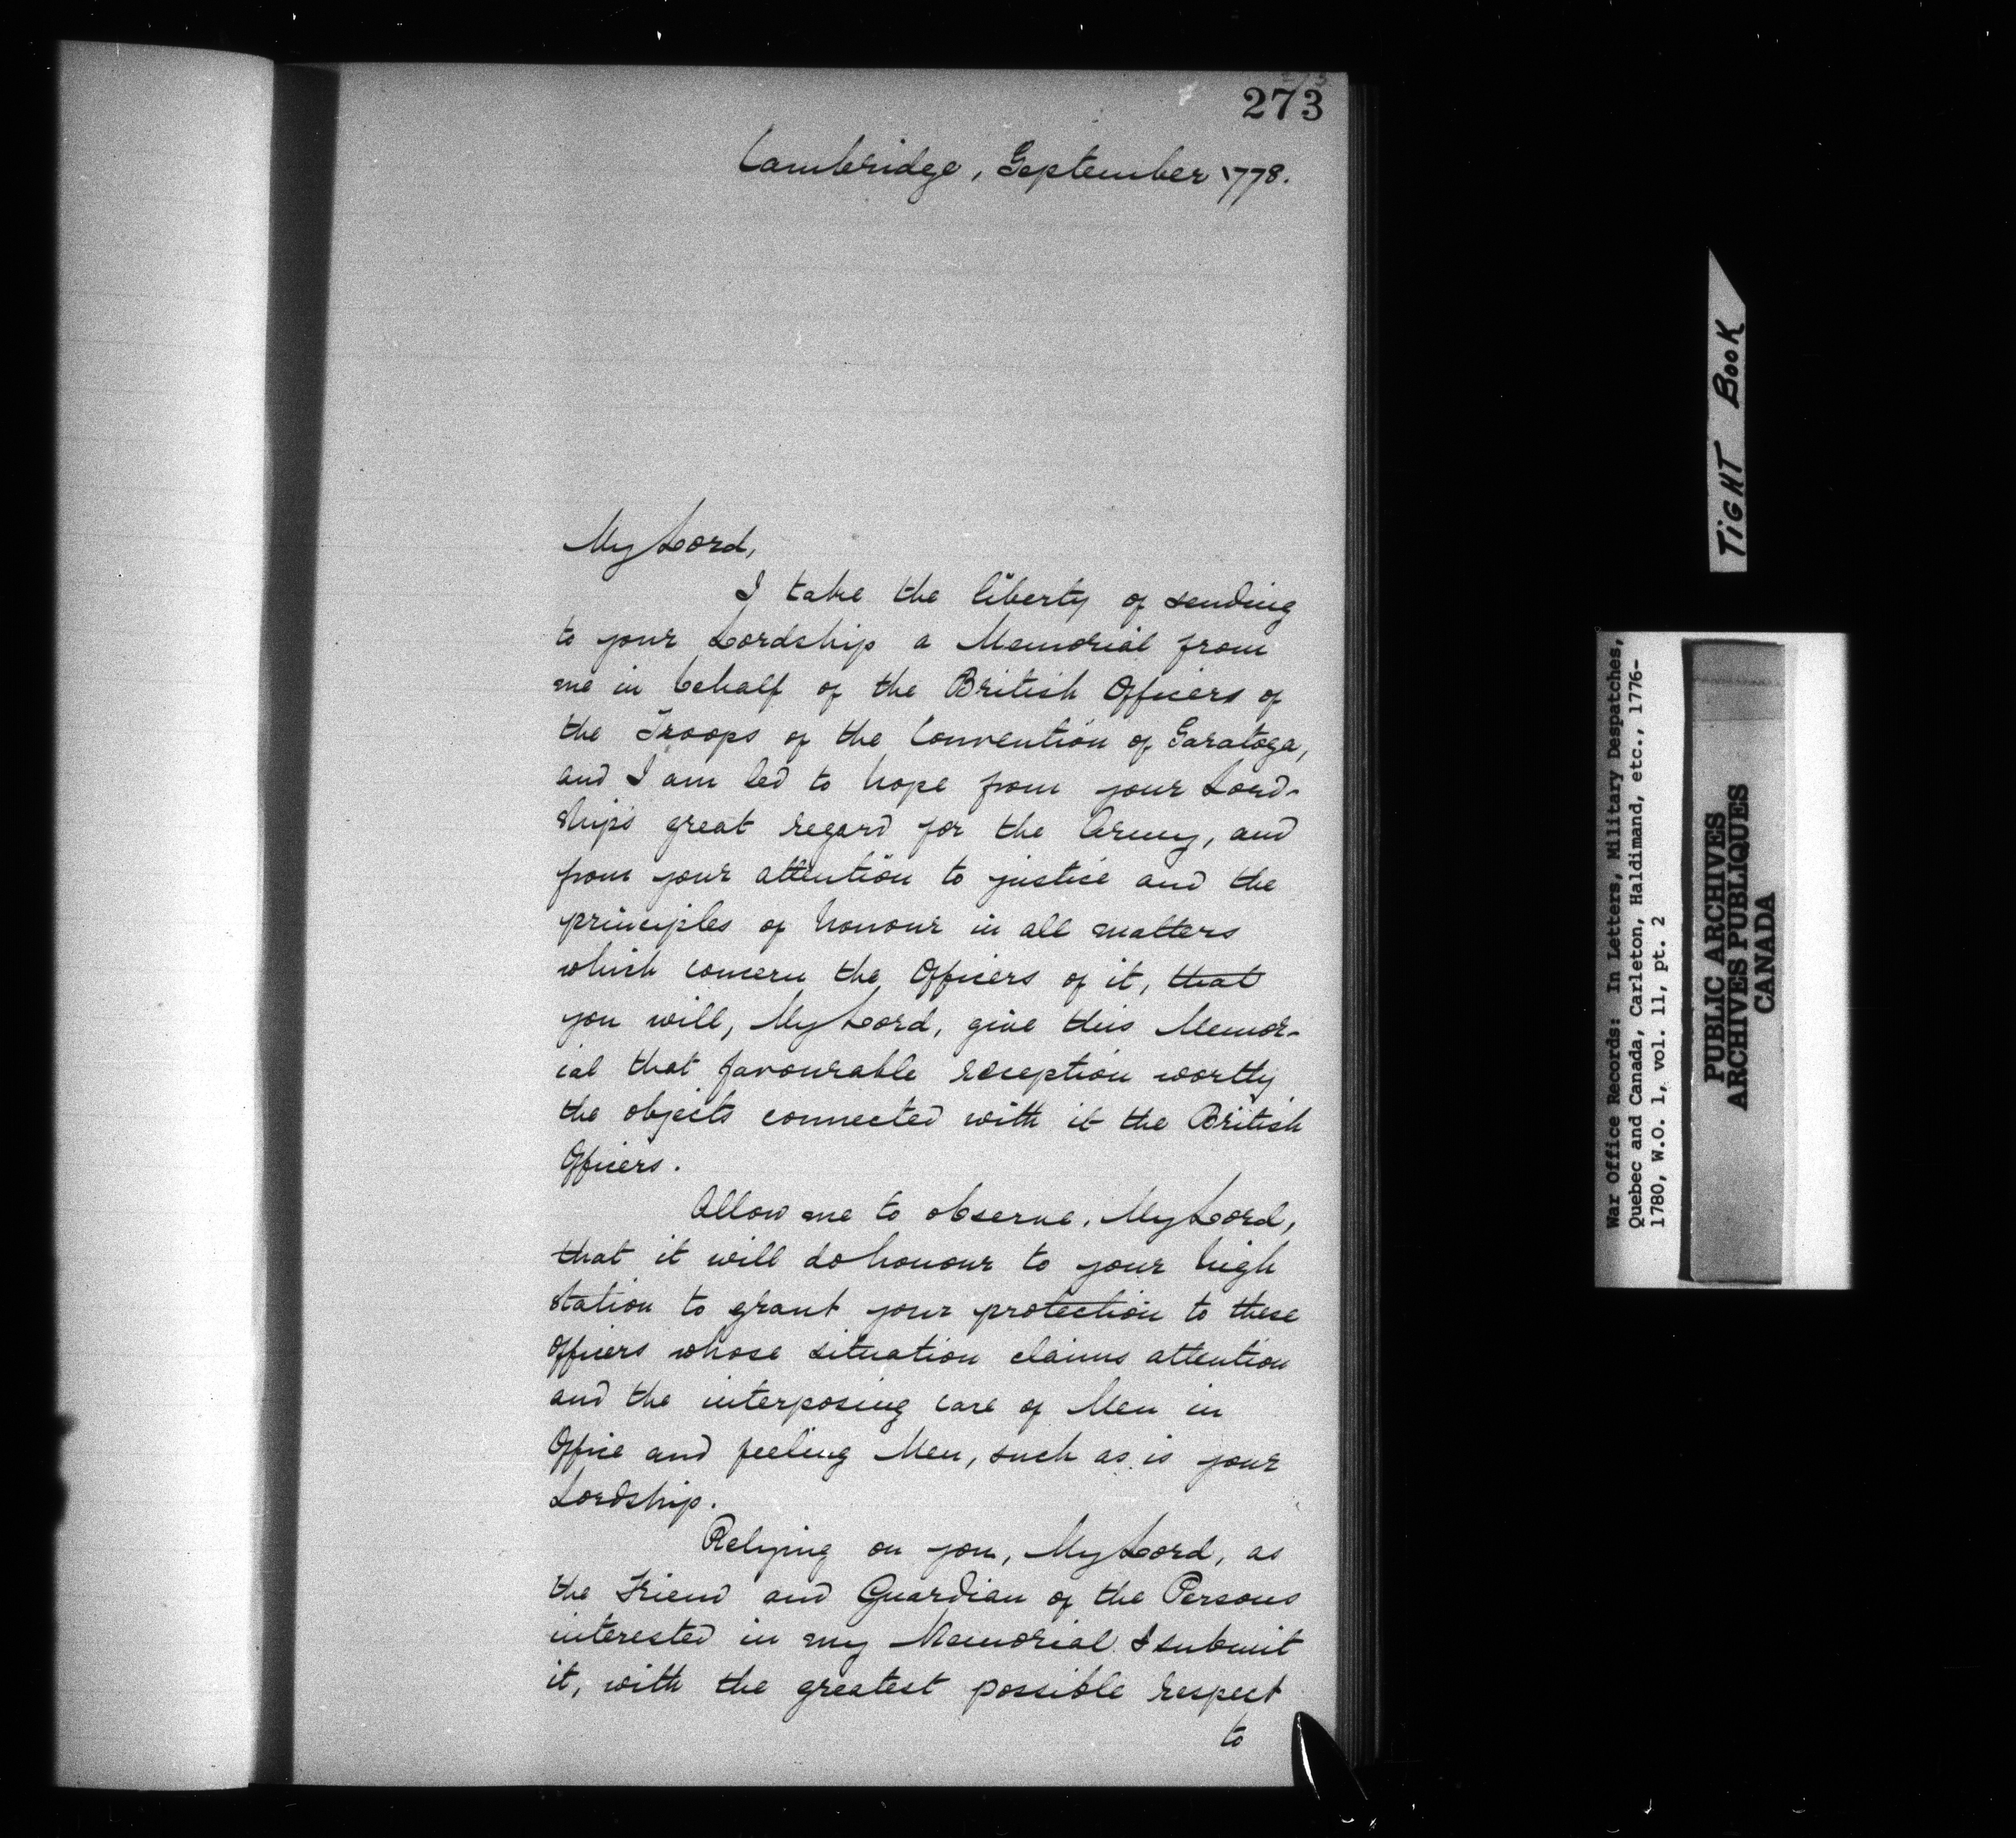 273
Cambridge, September 1778.
My Lord,
I take the liberty of sending
to your Lordship a Memorial from
me in behalf of the British Officers of
the Troops of the Convention of Saratoga,
and I am led to hope from your Lord-
ship's great regard for the Army, and
from your attention to justice and the
principles of honour in all matters
which concern the Officers of it, that
you will, My Lord, give this Memor-
ial that favourable reception worthy
the objects connected with it the British
Officers.
Allow me to observe, My Lord,
that it will do honour to your high
station to grant your protection to these
Officers whose situation claims attention
and the interposing care of Men in
Office and feeling Men, such as is your
Lordship.
Relying on you, My Lord, as
the Friend and Guardian of the Persons
interested in my Memorial I submit
it, with the greatest possible respect
to
TIGHT BOOK
War Office Records: In Letters, Military Despatches,
Quebec and Canada, Carleton, Haldimand, etc., 1776-
1780, W.O. 1, vol. 11, pt. 2
PUBLIC ARCHIVES
ARCHIVES PUBLIQUES
CANADA